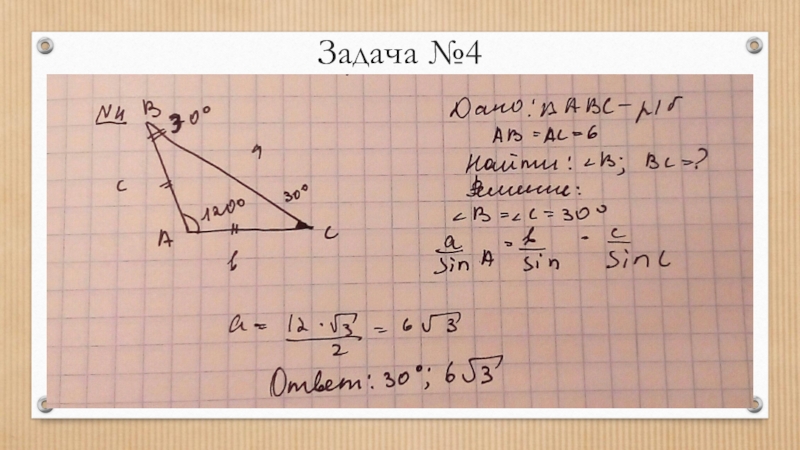 Задача №4
N4
B
30°
a
c
30°
120°
A
C
b
Дано: Δ ABC – р/б
AB = AC = 6
Найти: ∠B; BC = ?
Решение:
∠B = ∠C = 30°
a/Sin A = b/Sin = c/Sin C
a = 12 · √3 / 2 = 6√3
Ответ: 30°; 6√3